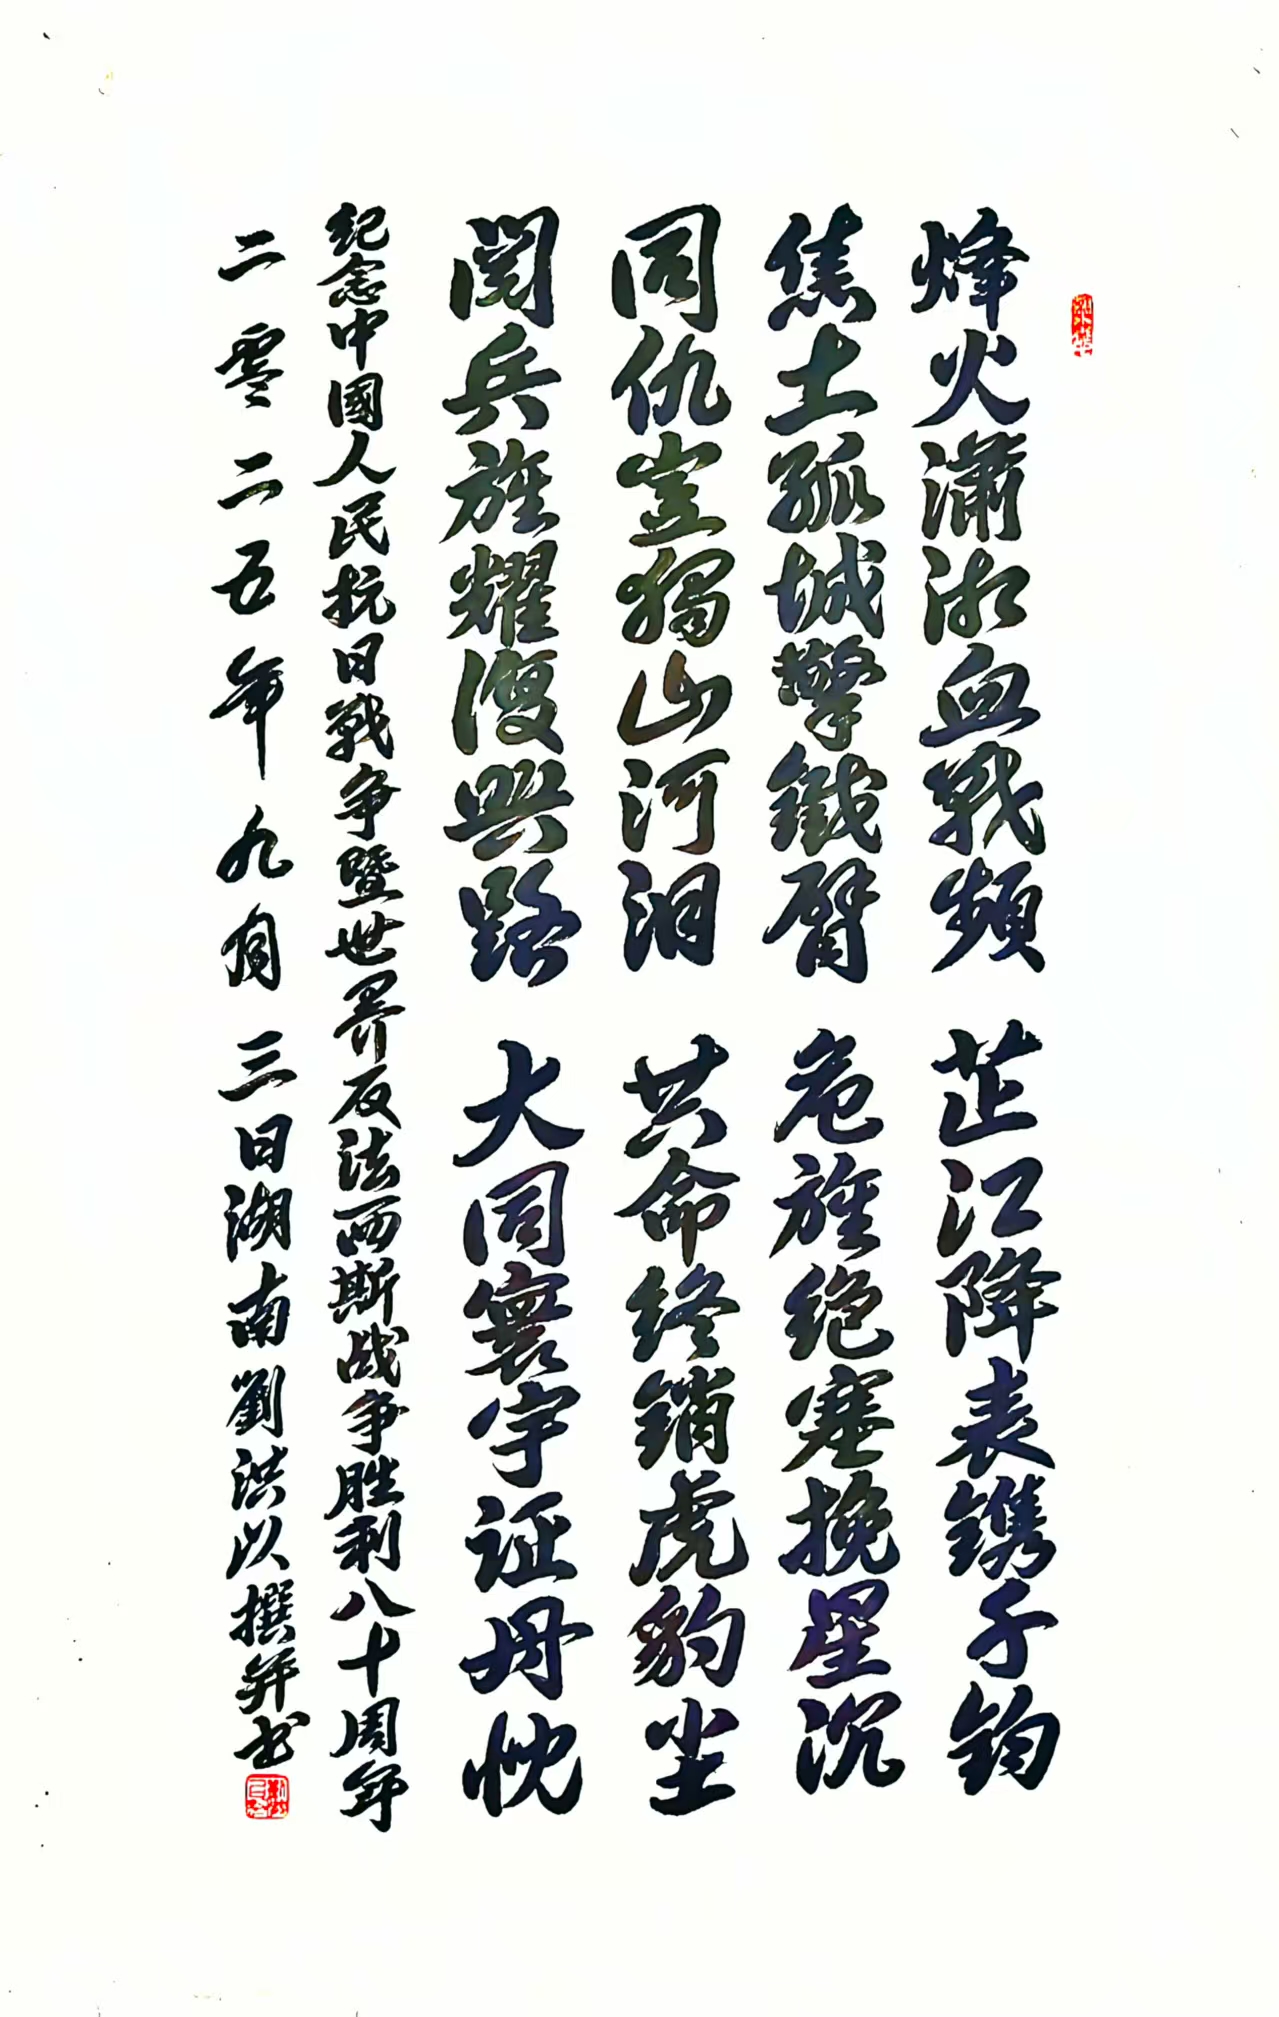 烽火瀟湘血戰頻 芷江降表鐫千鈞
焦土孤城擎鐵臂 危旌绝塞挽星沉
同仇豈獨山河泪 共命终銷虎豹尘
閱兵旌耀復興路 大同寰宇证丹忱
纪念中國人民抗日戰争暨世界反法西斯战争胜利八十周年
二零二五年九月三日湖南劉洪以撰并书